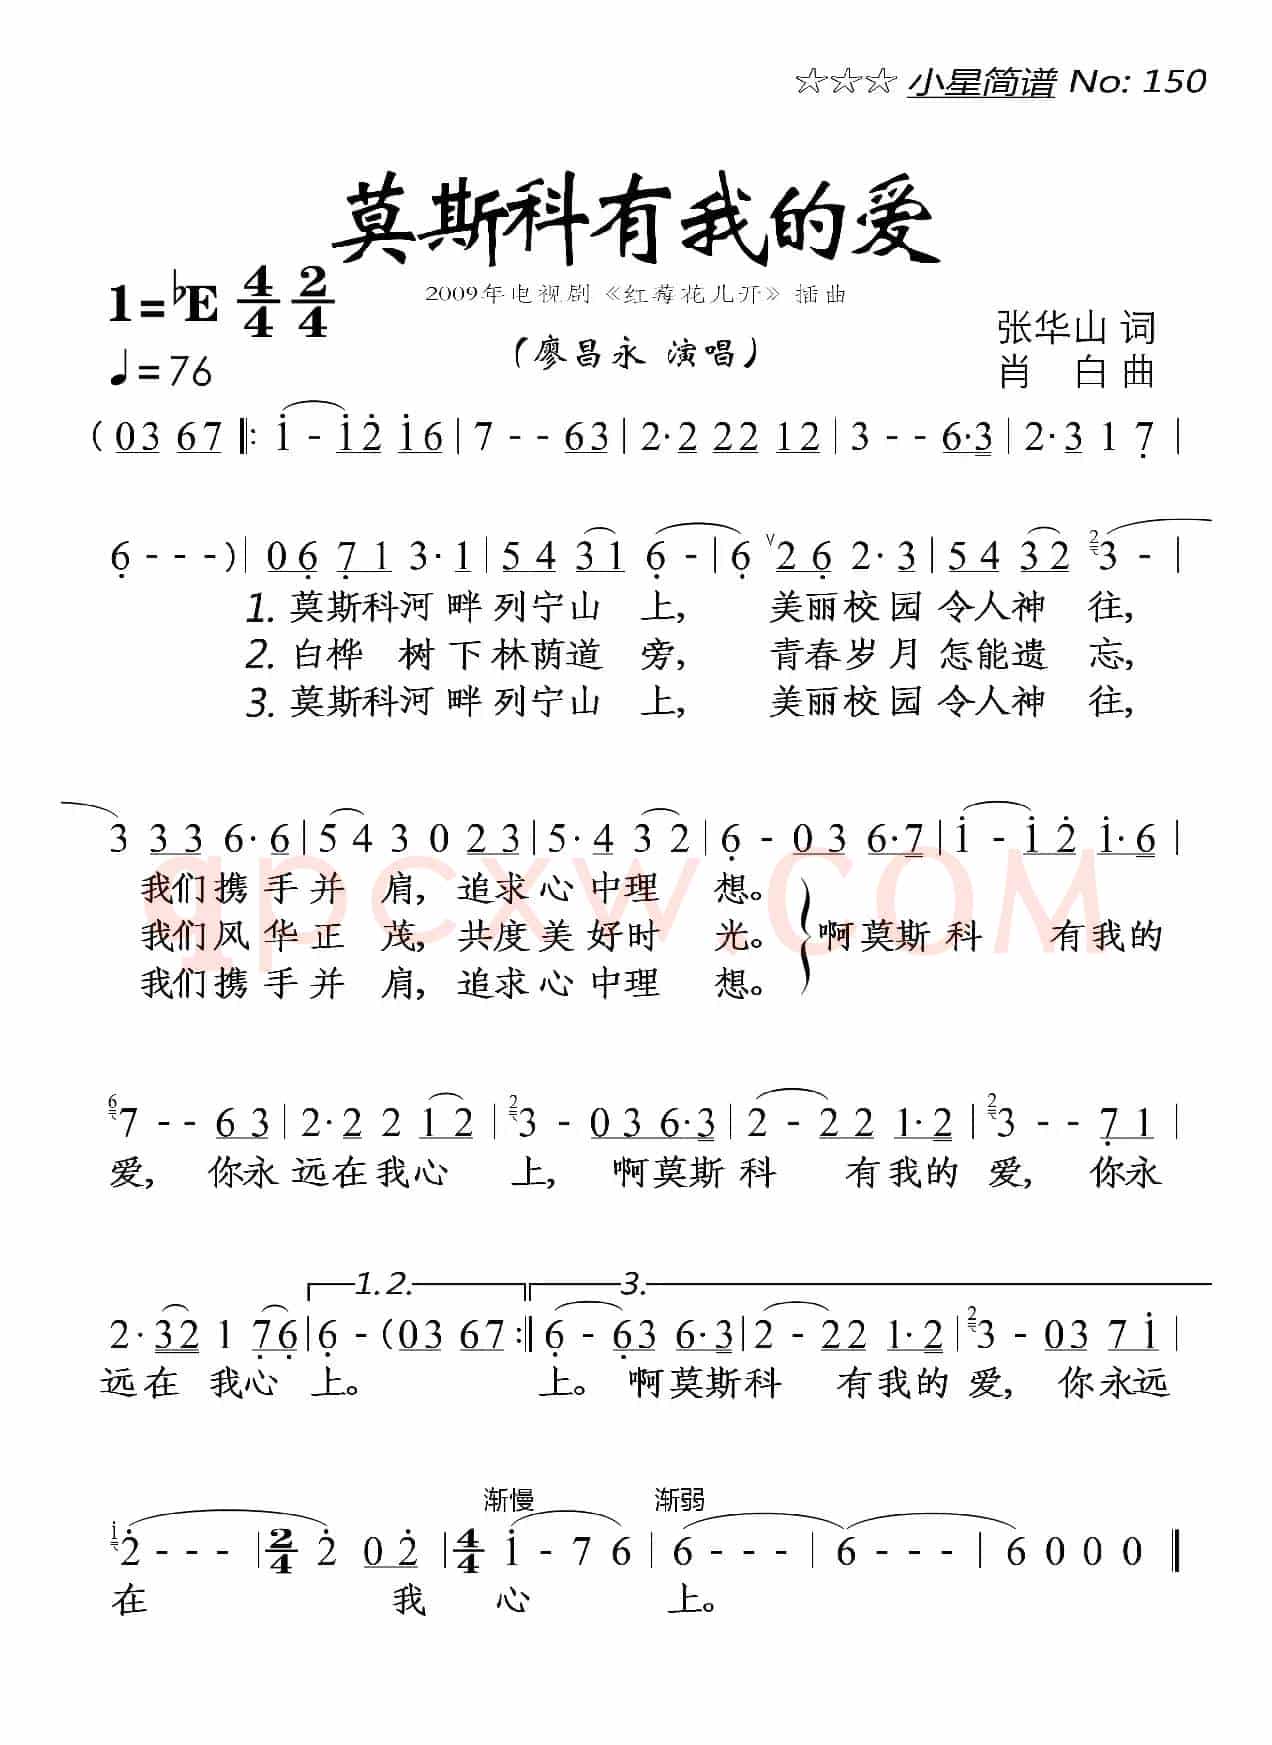 ☆☆☆ 小星简谱 No: 150
莫斯科有我的爱
2009年电视剧《红莓花儿开》插曲
1=♭E 4/4 2/4
张华山 词
(廖昌永 演唱)
♩=76
肖 白 曲
(03 67 ‖: i - i2 i6 | 7 - - 63 | 2·2 22 12 | 3 - - 6·3 | 2·3 1 7 |
6 - - -) | 06 71 3·1 | 54 31 6 - | 6 ∨ 26 2·3 | 54 32 3 - |
1. 莫斯科河 畔 列宁山 上, 美丽校园 令人神 往,
2. 白桦 树 下 林荫道 旁, 青春岁月 怎能遗 忘,
3. 莫斯科河 畔 列宁山 上, 美丽校园 令人神 往,
3 33 6·6 | 54 3 0 23 | 5·4 3 2 | 6 - 03 6·7 | i - i2 i·6 |
我们携 手 并 肩, 追求心 中理 想。
我们风 华 正 茂, 共度美 好时 光。 啊莫斯 科 有我的
我们携 手 并 肩, 追求心 中理 想。
7 - - 63 | 2·2 2 12 | 3 - 036·3 | 2 - 22 1·2 | 3 - - 71 |
爱, 你永 远在我心 上, 啊莫斯 科 有我的 爱, 你永
1.2. 3.
2·32 1 76 | 6 - (03 67 :‖ 6 - 63 6·3 | 2 - 22 1·2 | 3 - 03 7i |
远在 我心 上。 上。 啊莫斯科 有我的 爱, 你永远
渐慢 渐弱
2 - - - | 2/4 2 02 | 4/4 i - 7 6 | 6 - - - | 6 - - - | 6 0 0 0 ‖
在 我 心 上。
qpcxw.COM